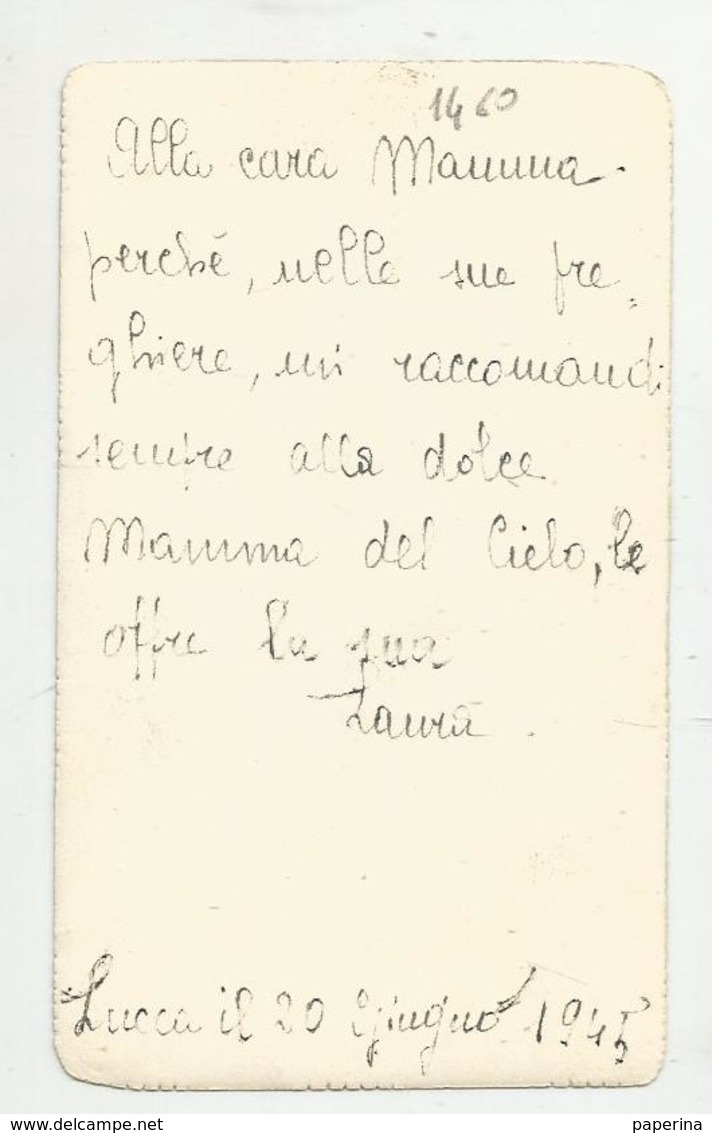 1460
Alla cara Mamma
perché, nelle sue pre=
ghiere, mi raccomandi
sempre alla dolce
Mamma del Cielo, le
offre la sua
Laura.
Lucca il 20 Giugno 1945
delcampe.net
paperina